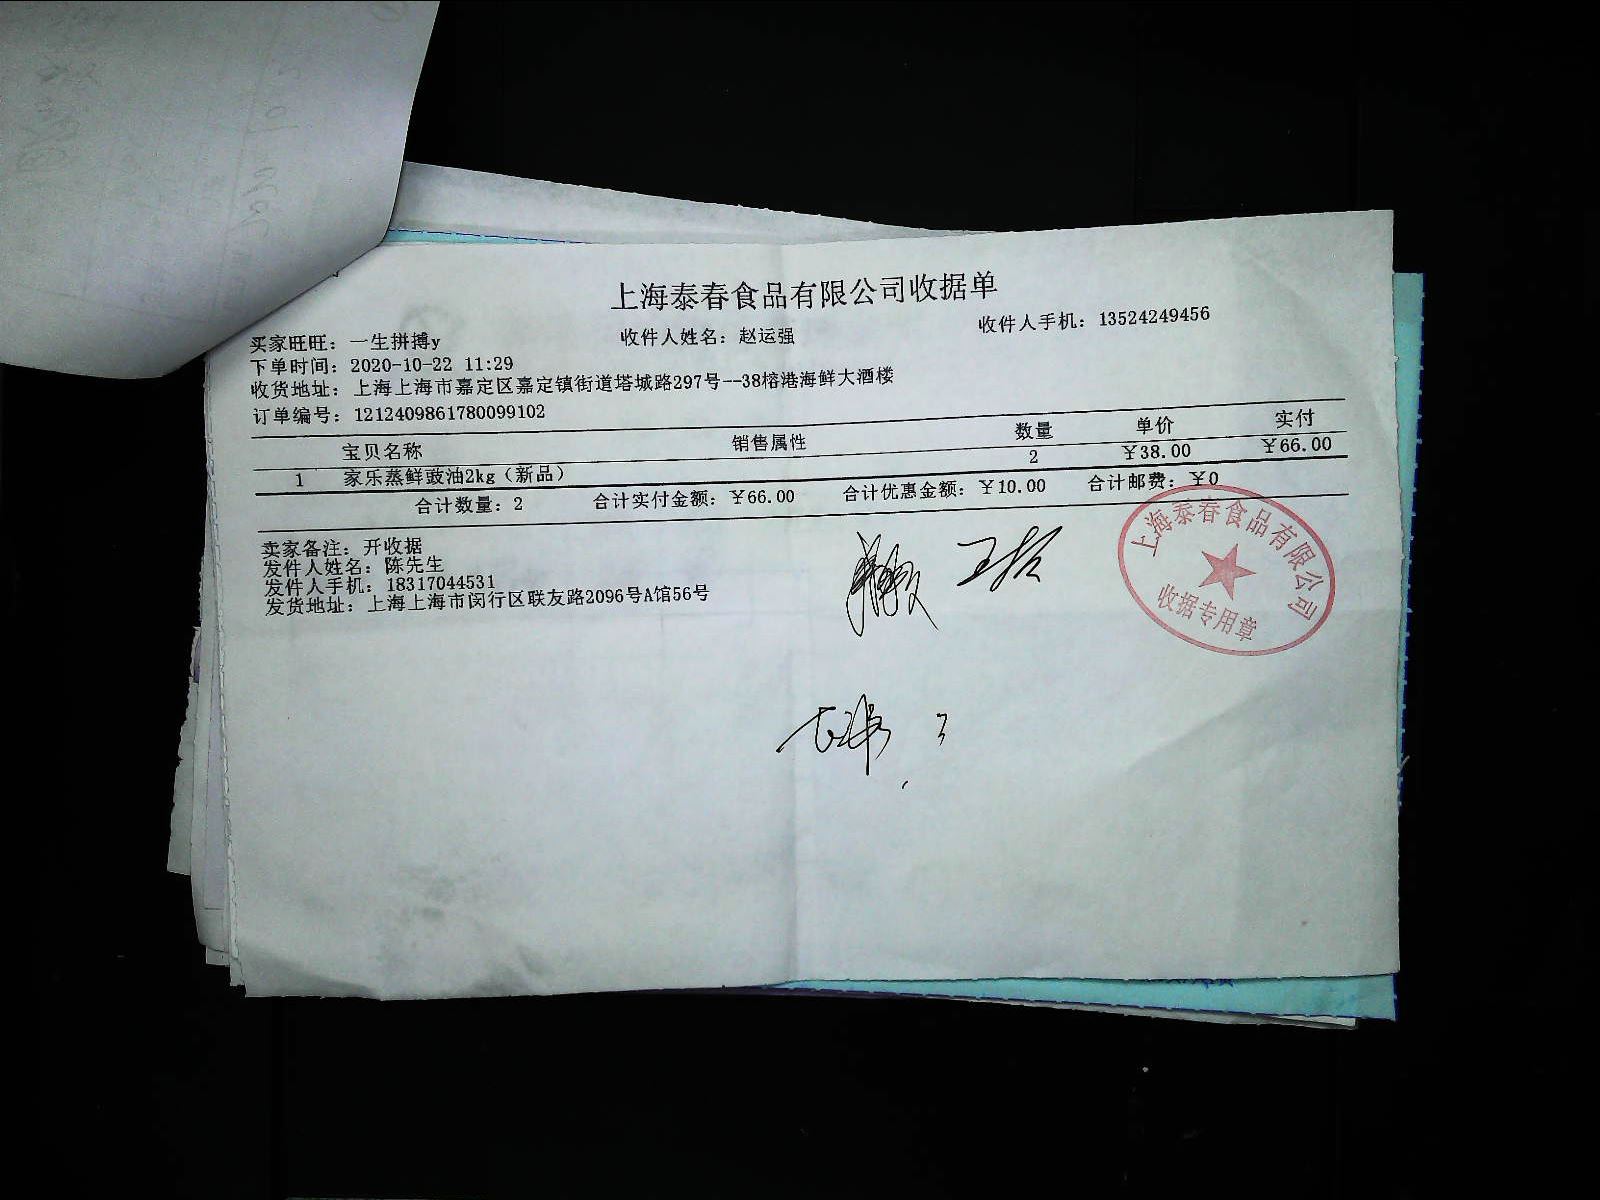 上海泰春食品有限公司收据单
买家旺旺：一生拼搏y 收件人姓名：赵运强 收件人手机：13524249456
下单时间：2020-10-22 11:29
收货地址：上海上海市嘉定区嘉定镇街道塔城路297号--38榕港海鲜大酒楼
订单编号：1212409861780099102
宝贝名称 销售属性 数量 单价 实付
1 家乐蒸鲜豉油2kg（新品） 2 ￥38.00 ￥66.00
合计数量：2 合计实付金额：￥66.00 合计优惠金额：￥10.00 合计邮费：￥0
卖家备注：开收据
发件人姓名：陈先生
发件人手机：18317044531
发货地址：上海上海市闵行区联友路2096号A馆56号
上海泰春食品有限公司
收据专用章